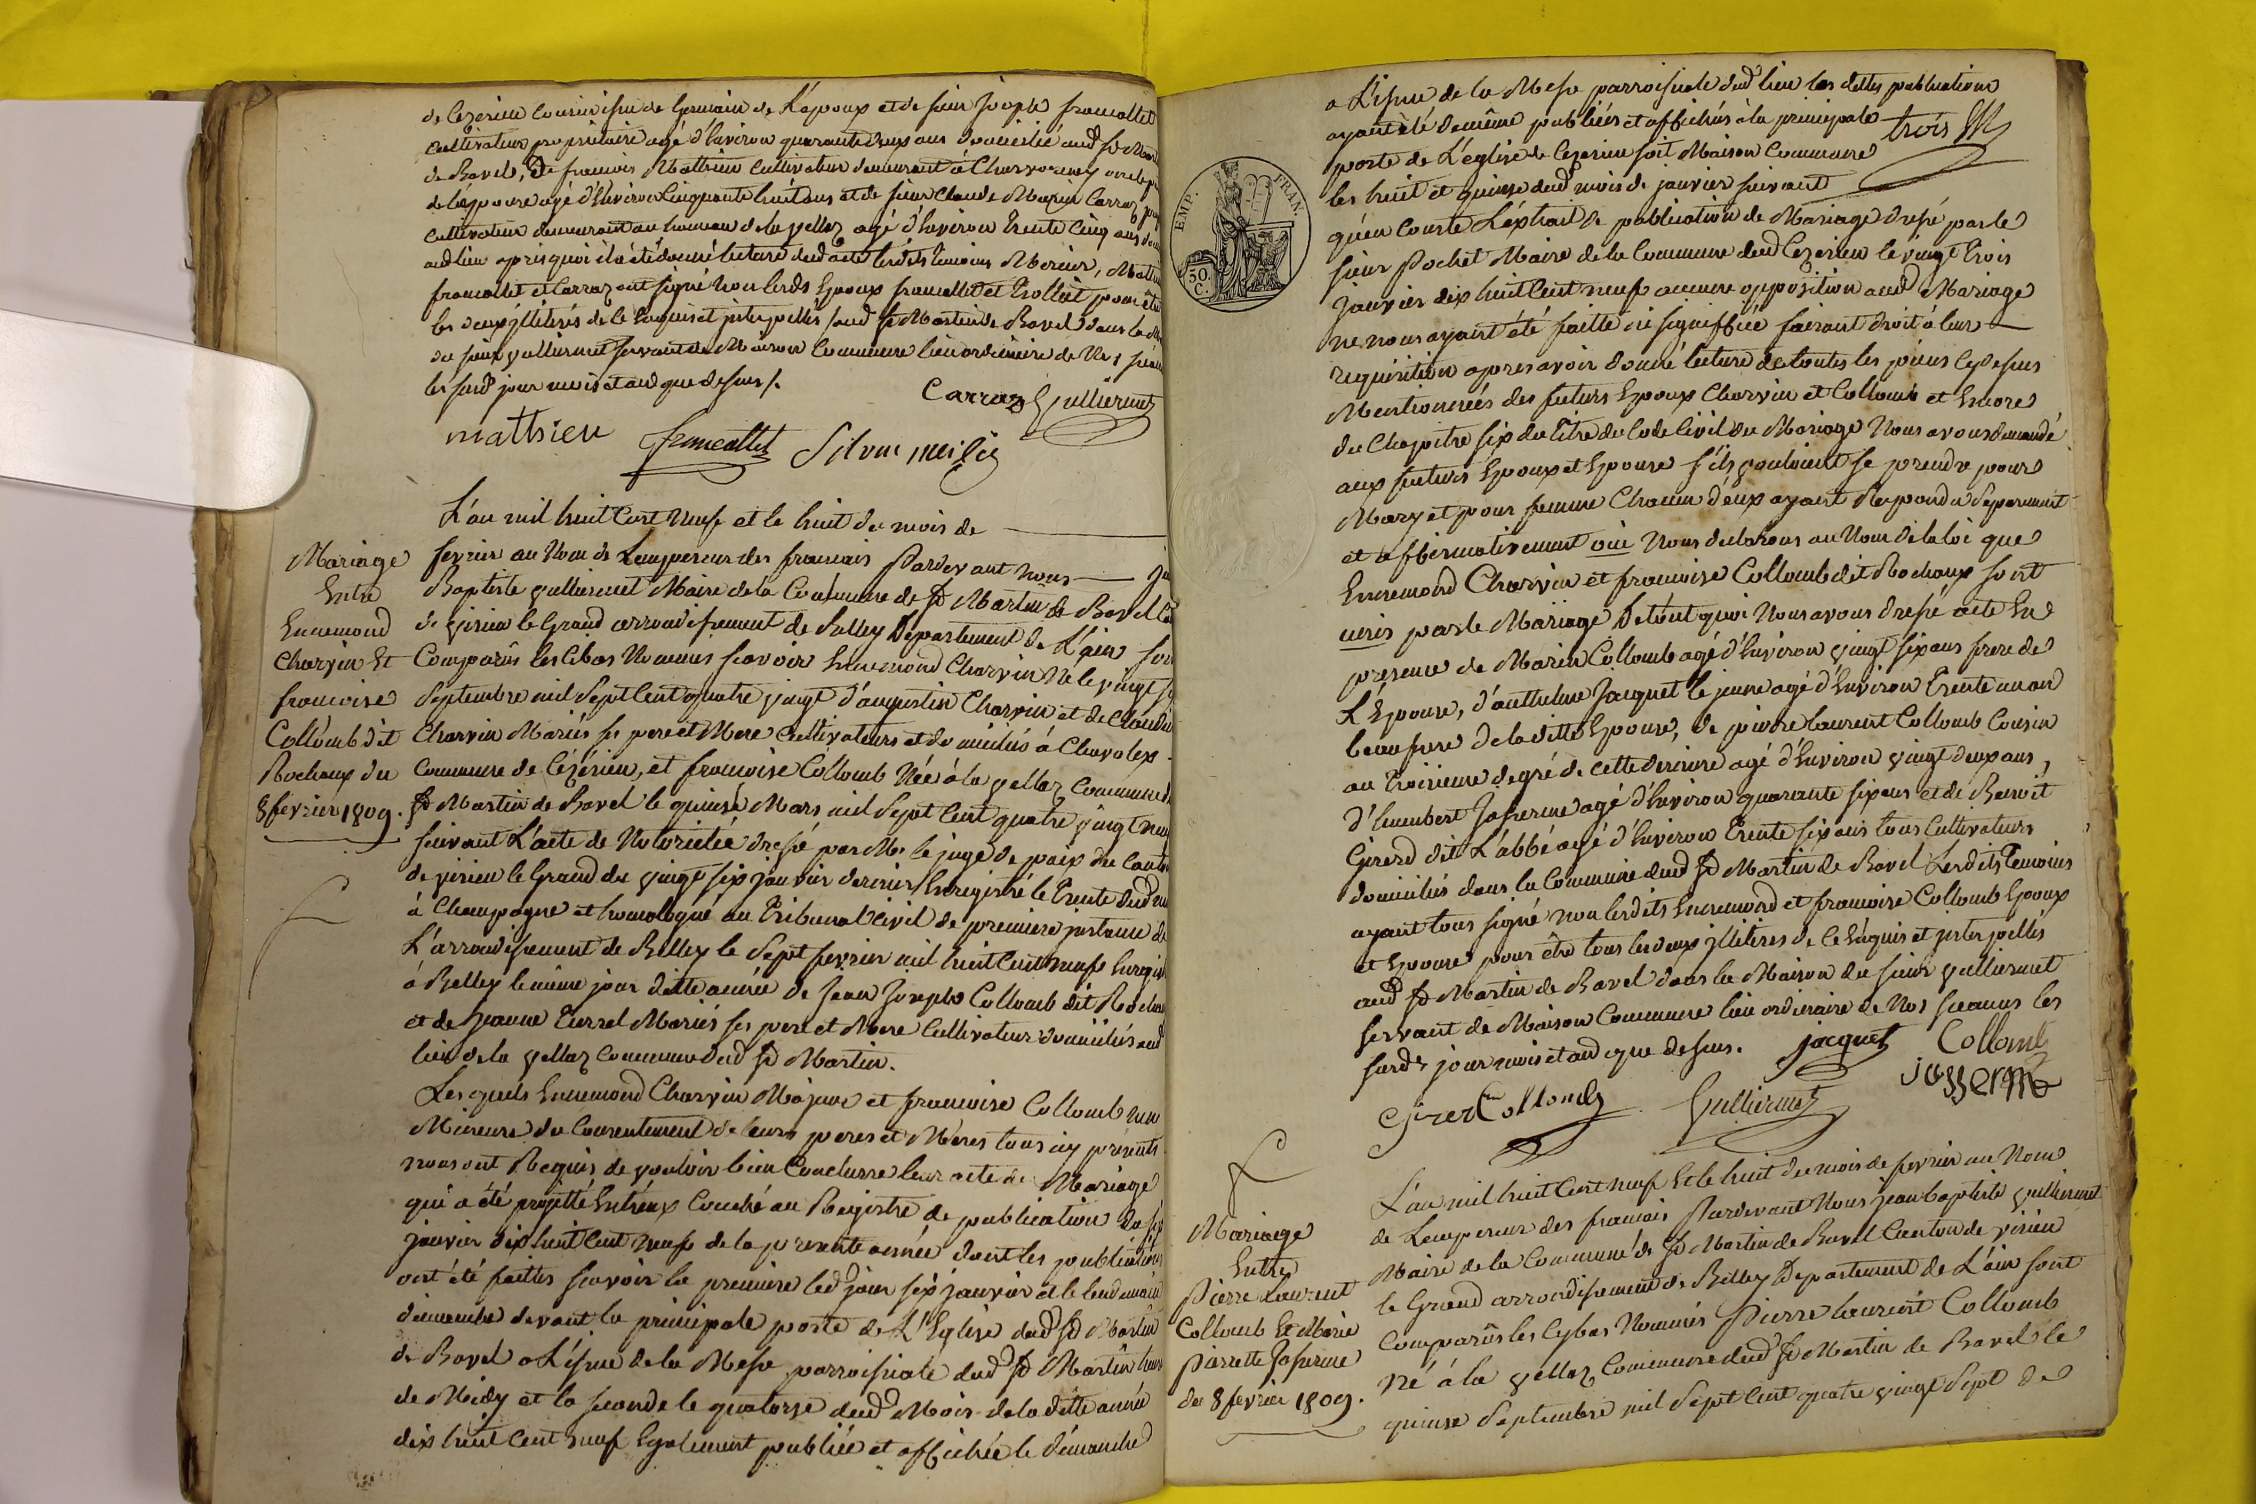 de Cezerieu Cousin issu de Germain de L'épouse et de sieur Joseph francallet
cultivateur proprietaire agé d'Environ quarante deux ans domicilié aud St Mart
de Bavel, De francois Matthieu cultivateur demeurant à Charvornay oncle
de l'épouse agé d'Environ Cinquante huit ans et de sieur Claude Marin Carraz
cultivateur demeurant au hameau de la vellaz agé d'Environ Trente Cinq ans
aud lieu apris quoi il a été donné lecture dud acte lesdits temoins Mercier, Matth
francallet et Carraz ont signé Non lesds Epoux francallet et Trollict pour être
les deux illiterés de ce Enquis et interpellés aud St Martin de Bavel dans la
du sieur vulliermet servant de Maison Commune lieu ordinaire de Nos
les susd jour mois et and que dessus /.
Carraz Gulliermet
matthieu francallet Silvn
L'an mil huit Cent Neuf et le huit du mois de
fevrier au Nom de Lempereur des francais Pardevant nous
Baptiste vulliermet Maire de la Commune de St Martin de Bavel
de virieu le Grand arrondissement de Belley Departement de L'ain
Comparûs les Cibas Nommés scavoir Ennemond Charvin Né le vingt
Septembre mil Sept Cent quatre vingt d'augustin Charvin et de Claudin
Charvin Mariés ses pere et Mere Cultivateurs et domiciliés à Chavolex
Commune de Cézérieu, et francoise Collomb Née à la vellaz Commune de
St Martin de Bavel le quinze Mars mil Sept Cent quatre vingt neuf
suivant L'acte de Notorietée dressé par Mr le juge de paix du Canton
de virieu le Grand du vingt six janvier dernier Enregistré le Trente dud
à Champagne et homologué au Tribunal Civil de premiere instance de
L'arrondissement de Belley le Sept fevrier mil huit Cent neuf Enregist
à Belley le même jour ditte année de Jean Joseph Collomb dit Rochaux
et de jeanne Turrel Mariés ses pere et Mere Cultivateurs domiciliés aud
lieu de la vellaz Commune dud St Martin.
Lesquels Ennemond Charvin Majeur et francoise Collomb
Mineure du Consentement de leurs peres et Meres tous icy présents
nous ont Requis de vouloir bien Conclurre leur acte de Mariage
qui a été projetté Entreux Couché au Registre de publication du six
janvier dix huit Cent neuf de la présente année dont les publications
ont été faittes scavoir la premiere led jour six janvier et le lendemain
dimanche devant la principale porte de L'Eglise dud St Martin
de Bavel a L'issue de la Messe parroissiale dud St Martin heure
de Midy et la seconde le quatorze dud Mois de la ditte année
dix huit Cent neuf Egalement publiée et affichée le dimanche
Mariage
Entre
Ennemond
Charvin Et
francoise
Collomb dit
Rochaux du
8 fevrier 1809.
a L'issue de la Messe parroissiale dud lieu les dittes publications
ayant été de même publiées et affichées à la principale
porte de L'eglise de Cezerieu soit Maison Commune
les huit et quinze dud mois de janvier suivant
qu'en Conste L'éxtrait de publication de Mariage dressé par le
sieur Pochet Maire de la Commune dud Cezerieu le vingt Trois
janvier dix huit Cent neuf aucune opposition aud Mariage
ne nous ayant été faitte ni signiffiée faisant droit à leur
requisition apres avoir donné lecture de toutes les piéces cy dessus
Mentionnées des futurs Epoux Charvin et Collomb et Encore
du Chapitre six du titre du Code Civil du Mariage Nous avons demandé
aux futurs Epoux et Epouse s'ils vouloient se prendre pour
Mary et pour femme Chacun d'eux ayant Repondu Separement
et affirmativement oüi Nous declarons au Nom de la loi que
Ennemond Charvin et francoise Collomb dit Rochaux sont
unis par le Mariage De tout quoi Nous avons dressé acte En
presence de Marin Collomb agé d'Environ vingt six ans frere de
L'Epouse, d'anthelme Jacquet le jeune agé d'Environ Trente un an
beau frere de la ditte Epouse, de pierre laurent Collomb Cousin
au troisieme degré de cette derniere agé d'Environ vingt deux ans,
d'humbert Josserme agé d'Environ quarante six ans et de Benoit
Girerd dit L'abbé agé d'Environ Trente six ans tous Cultivateurs
domiciliés dans la Commune dud St Martin de Bavel Lesdits Temoins
ayant tous signé non lesdits Ennemond et francoise Collomb Epoux
et Epouse pour être tous les deux illiteres de ce Enquis et interpellés
aud St Martin de Bavel dans la Maison du sieur vulliermet
servant de Maison Commune lieu ordinaire de Nos seances les
susds jour mois et and que dessus. jacquet Collomb
Girer Collomb Gulliermet josserme
EMP. FRAN.
50.
C.
Mariage
Entre
Pierre Laurent
Collomb Et Marie
Pierrette Josserme
du 8 fevrier 1809.
L'an mil huit Cent neuf Et le huit du mois de fevrier au Nom
de Lempereur des francais Pardevant Nous jean baptiste vulliermet
Maire de la Commune de St Martin de Bavel Canton de virieu
le Grand arrondissement de Belley Departement de L'ain sont
Comparûs les Cybas Nommés Pierre laurent Collomb
né à la vellaz Commune dud St Martin de Bavel le
quinze Septembre mil Sept Cent quatre vingt Sept de